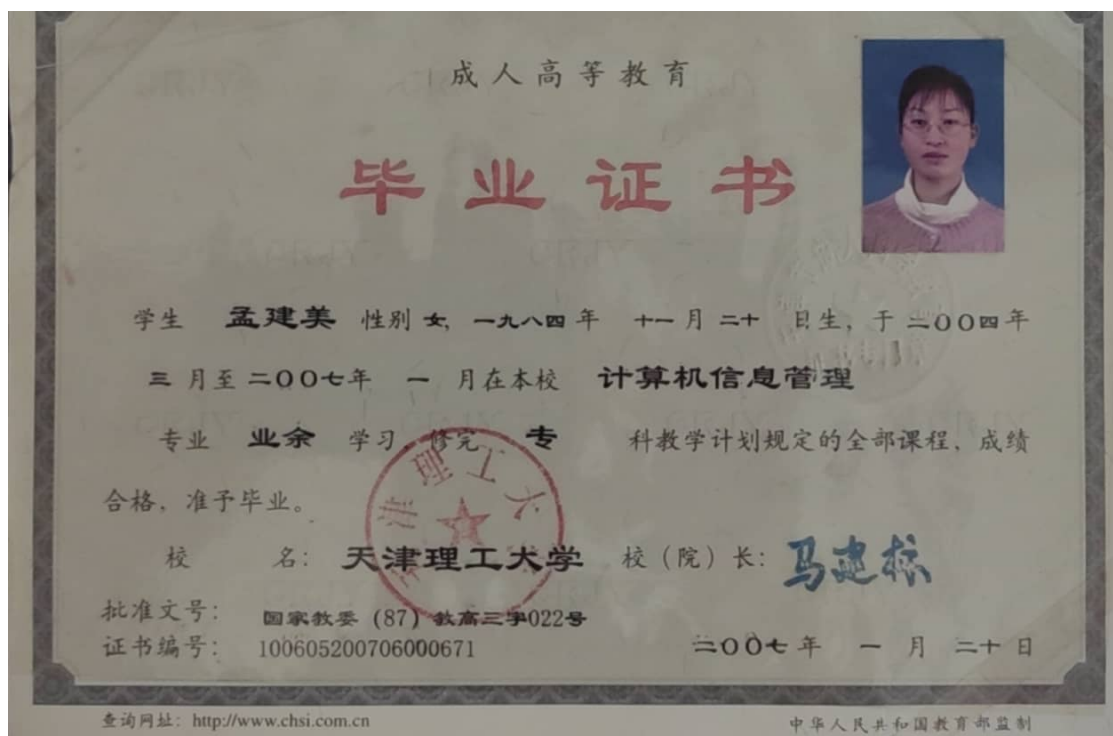 成人高等教育
毕业证书
学生 孟建美 性别 女, 一九八四 年 十一 月 二十 日生, 于 二〇〇四 年
三 月至 二〇〇七 年 一 月在本校 计算机信息管理
专业 业余 学习 修完 专 科教学计划规定的全部课程, 成绩
合格, 准予毕业。
校 名: 天津理工大学 校(院)长: 马建标
批准文号: 国家教委 (87) 教高三字022号
证书编号: 100605200706000671 二〇〇七 年 一 月 二十 日
查询网址: http://www.chsi.com.cn 中华人民共和国教育部监制